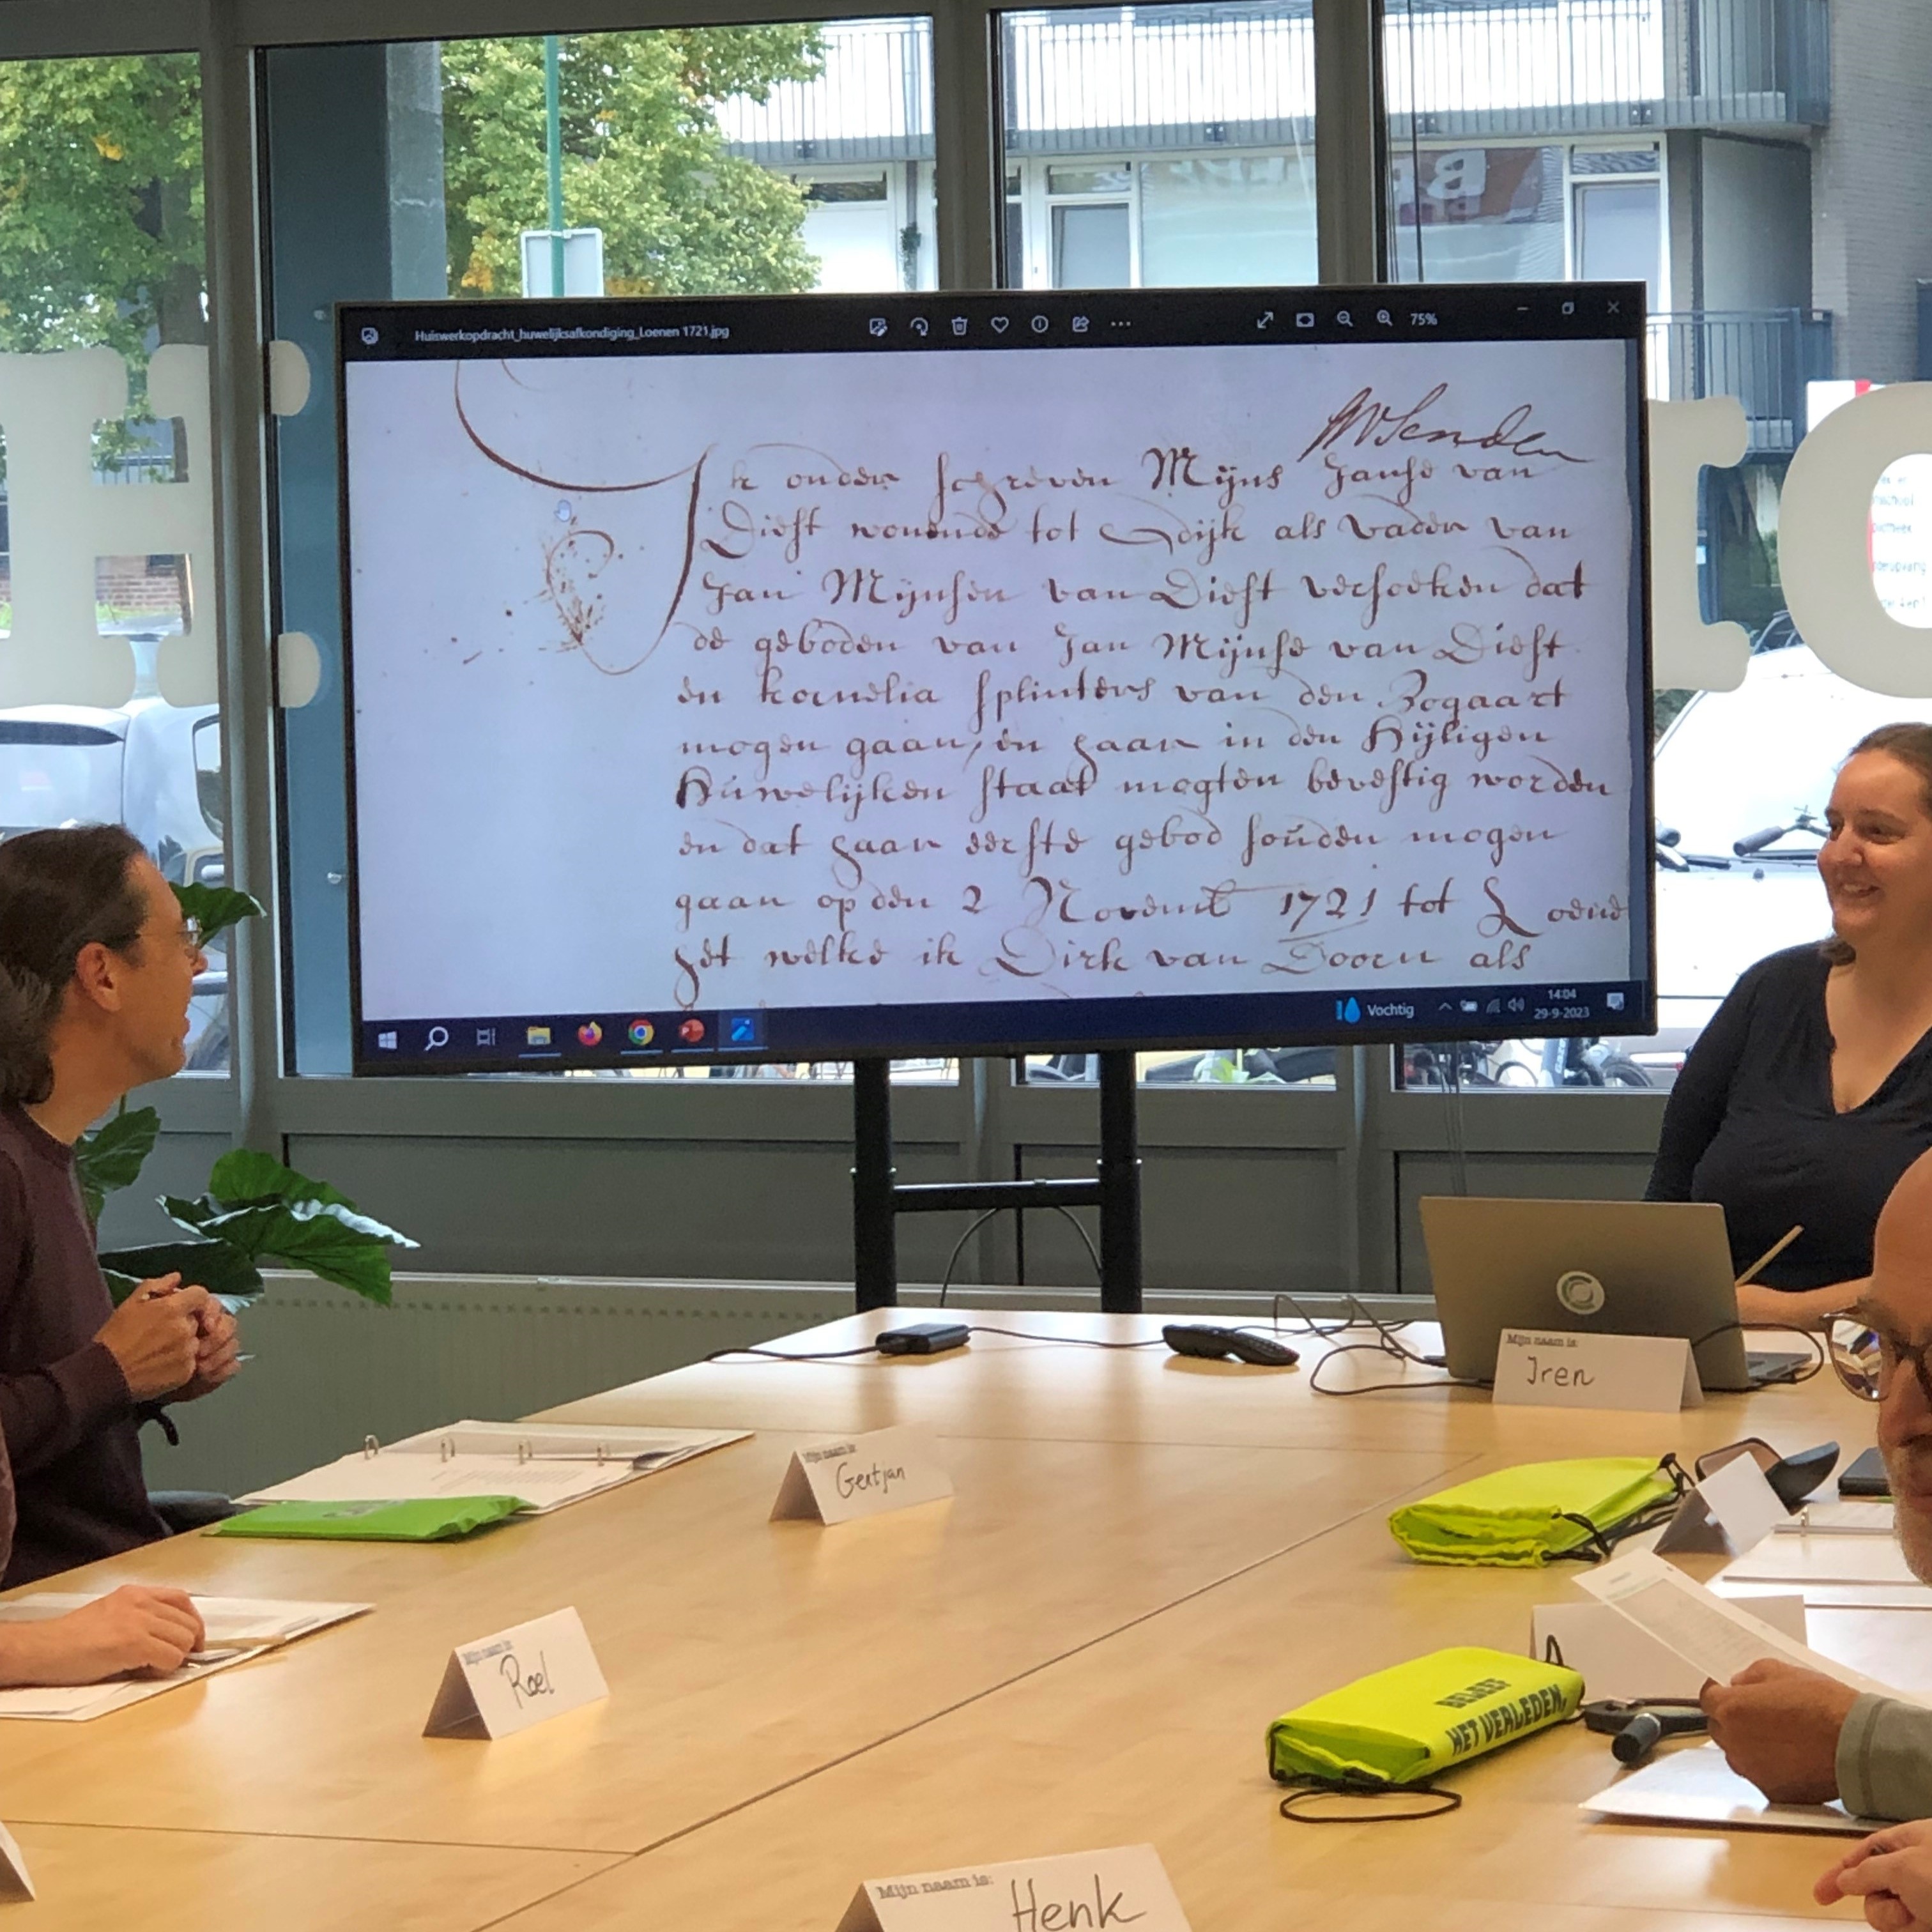 Huiswerkopdracht_huwelijksafkondiging_Loenen 1721.jpg
75%
Ik onderschreven Mijns Janse van
Diest wonende tot Dijk als vader van
Jan Mijnsen van Diest versoeken dat
de geboden van Jan Mijnse van Diest
en kornelia splinters van den Bogaart
mogen gaan, en haar in den Hijligen
Huwelijken staat mogten bevestig worden
en dat haar eerste gebod souden mogen
gaan op den 2 Novemb 1721 tot Loene
het welke ik Dirk van Doorn als
Vochtig
14:04
29-9-2023
Mijn naam is:
Iren
Mijn naam is:
Gertjan
Mijn naam is:
Roel
BELEEF
HET VERLEDEN.
Mijn naam is:
Henk